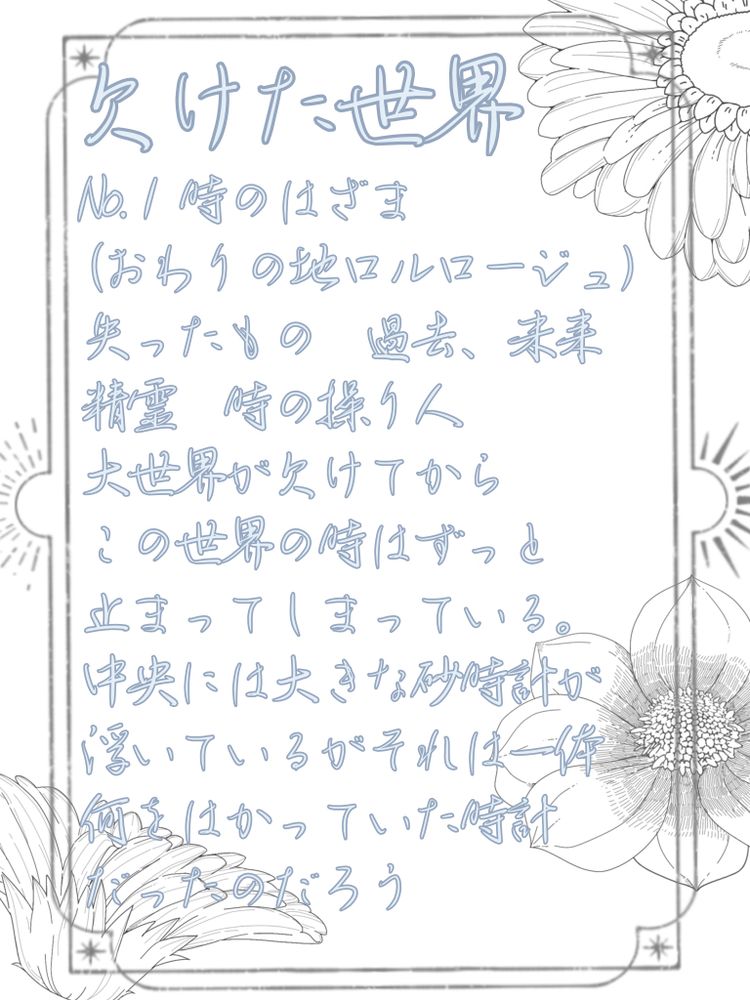 欠けた世界
No.1 時のはざま
(おわりの地ロルロージュ)
失ったもの　過去、未来
精霊　時の操り人
大世界が欠けてから
この世界の時はずっと
止まってしまっている。
中央には大きな砂時計が
浮いているがそれは一体
何をはかっていた時計
だったのだろう